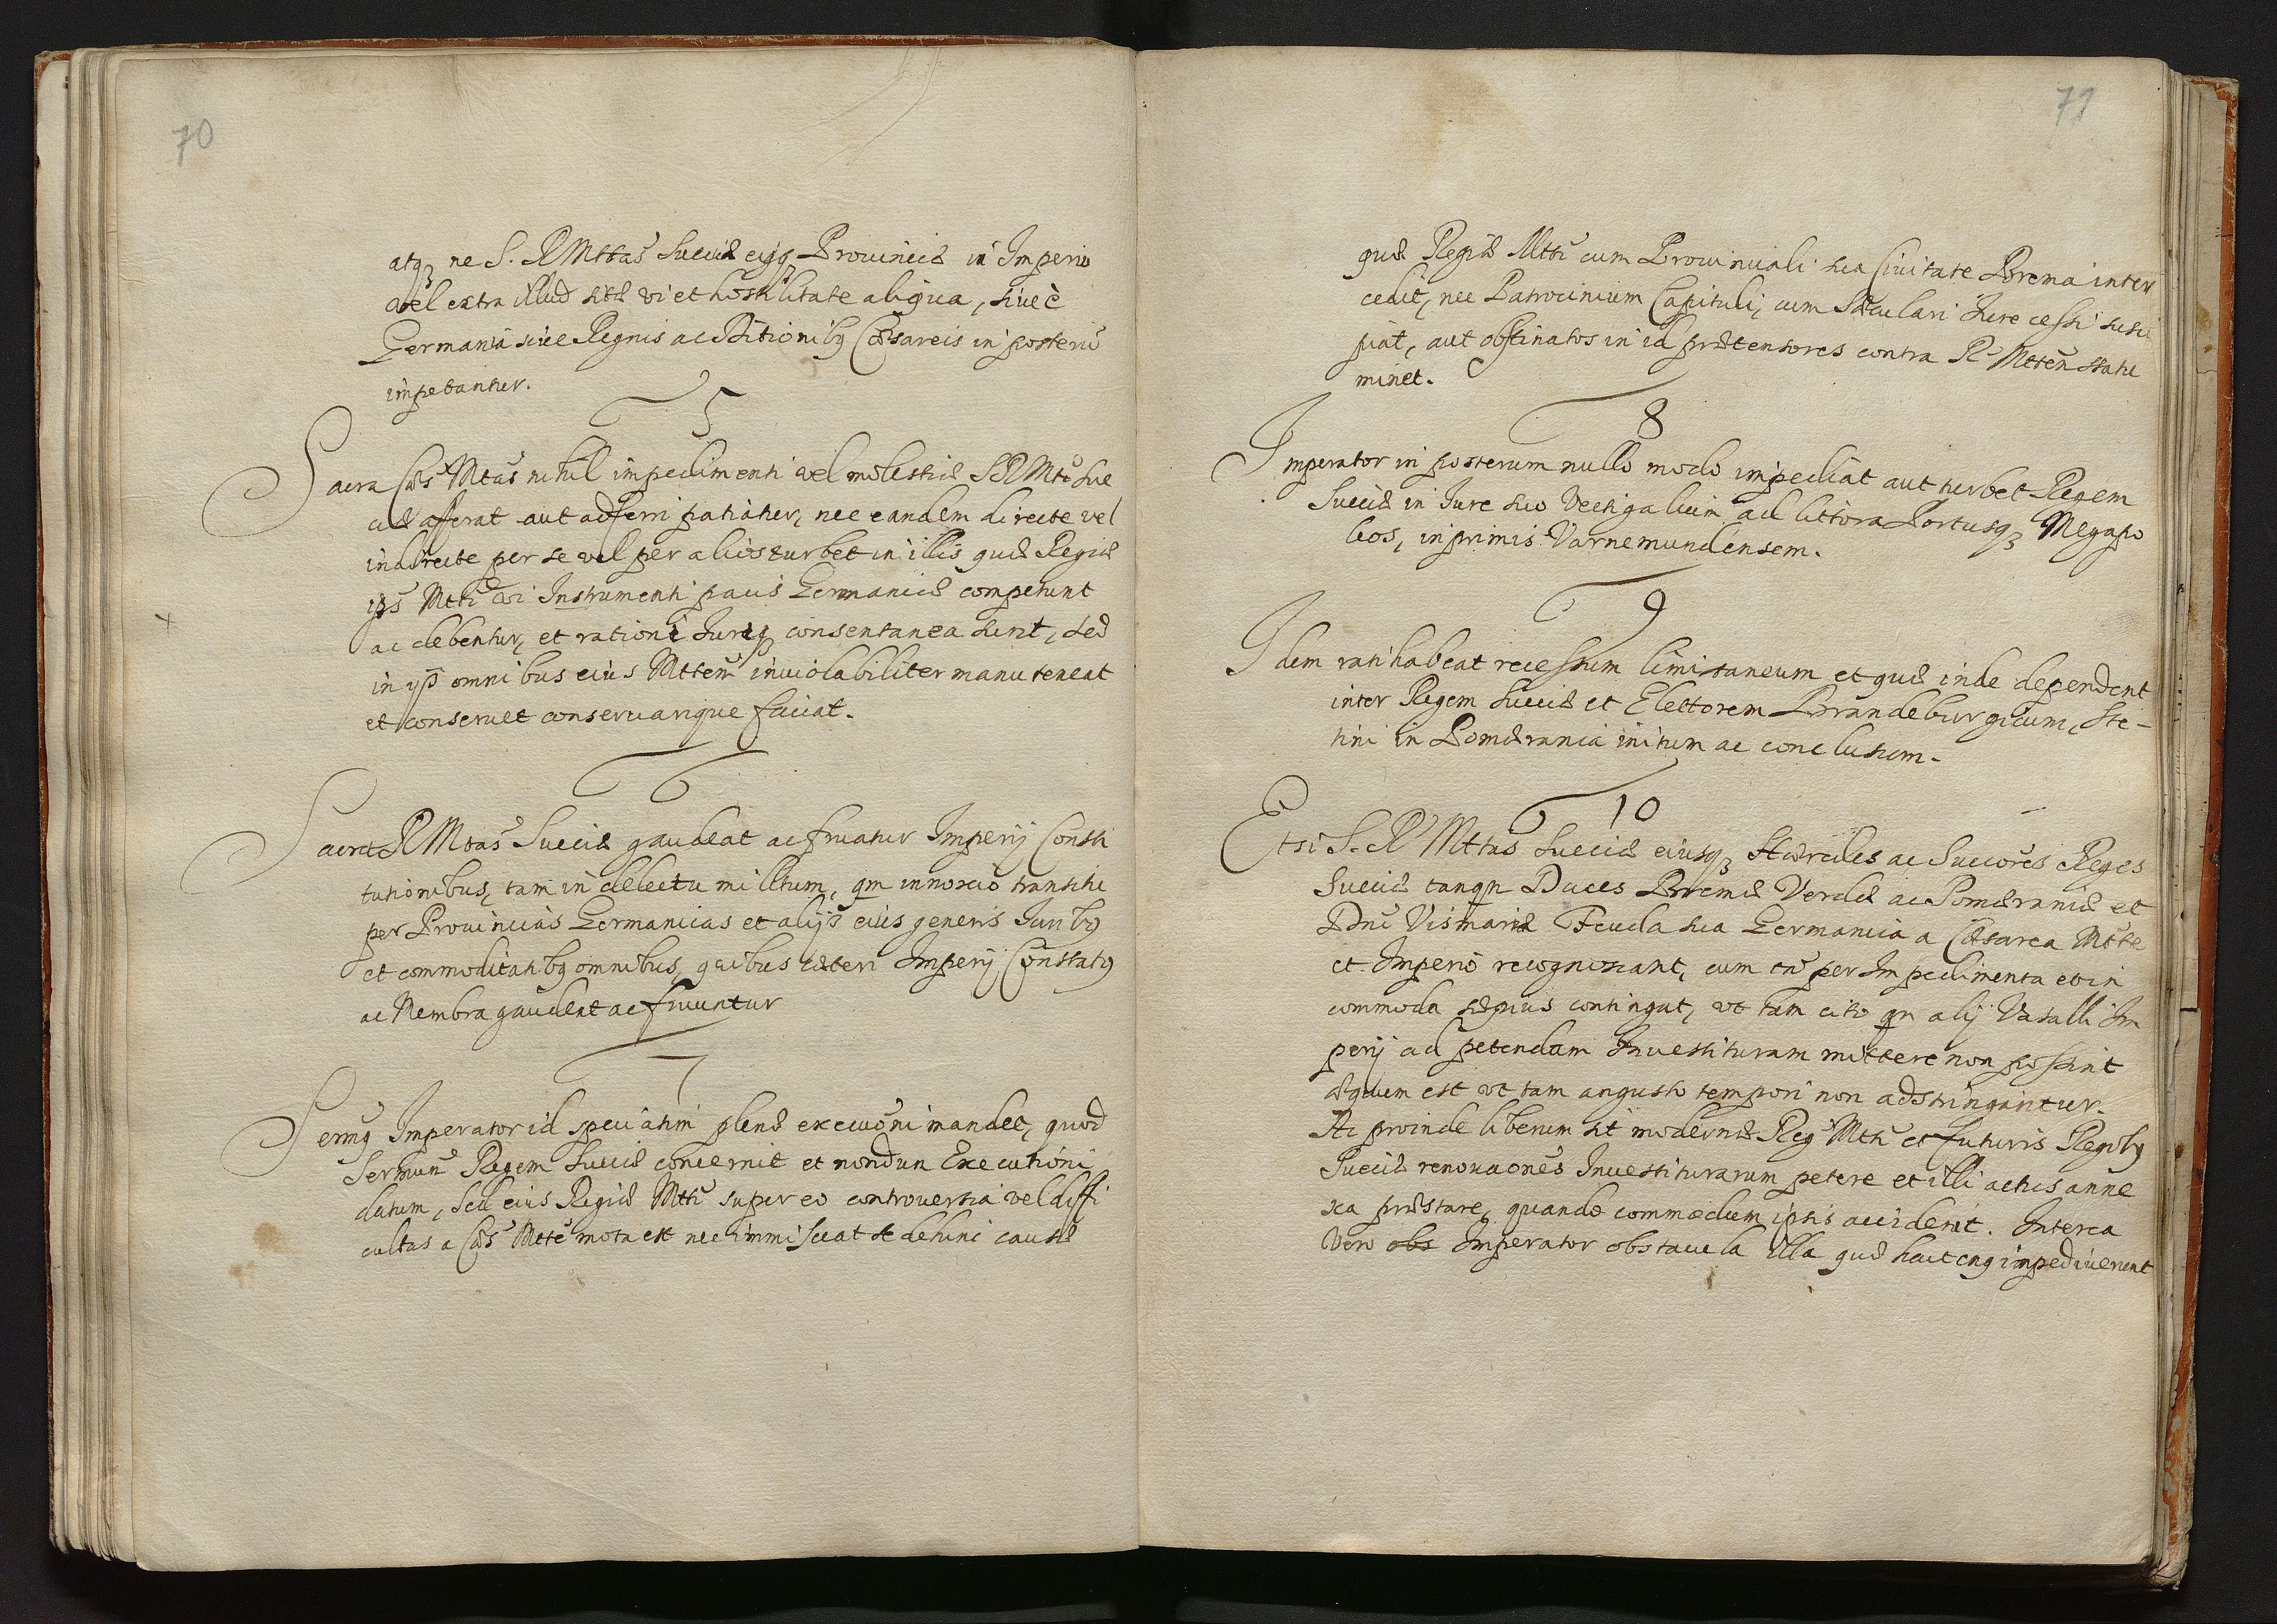 70
atq₃ ne S. R Mttas Sueciæ eijsq₃ Prouinciæ in Imperio
vel extra illud sitæ vi et hostilitate aliqua, siue è
Germania siue Regnis ac Ditionibꝰ Cæsareis in posterũ
impetantur.
5
Sacra Cæs Mtas nihil impedimenti vel molestiæ SR Mti Sue
ciæ afferat aut adferri patiatur, nec eandem directe vel
indirecte per se vel per alios turbet in illis quæ Regiæ
ips Mtti vi Instrumenti pacis Germanicæ competunt
ac debentur, et rationi Juriq₃ consentanea sunt, sed
in ijs omnibus eius Mttem inuiolabiliter manuteneat
et conseruet conseruarique faciat.
6
Sacra R Mtas Sueciæ gaudeat ac fruatur Imperij Consti
tutionibus, tam in delectu militum, qm innoxio transitu
per Prouincias Germanicas et alijs eius generis Juribꝰ
et commoditatibꝰ omnibus, quibus cæteri Imperij Constatꝰ
ac Membra gaudent ac fruuntur
7
Sermꝰ Imperator id speciatim plenæ execuõni mandet, quod
Sermum Regem Sueciæ concernit et nondun Executioni
datum, sed eius Regiæ Mtti super eo controuersia vel diffi
cultas a Cæs Mtte mota est nec immisceat se dehinc causæ
71
quæ Regiæ Mtti cum Prouinciali sua Ciuitate Brema inter
cedit, nec Patrocinium Capituli, cum Sæculari Jure cessi susci
piat, aut obstinatos in id prætensores contra R Mttem stahe
minet.
8
Imperator in posterum nullo modo impediat aut turbet Regem
Sueciæ in Jure suo Vectigalium ad littora Portusq₃ Megapo
leos, inprimis Varnemundensem.
9
Idem ratihabeat recessum limitaneum et quæ inde dependent
inter Regem Sueciæ et Electorem Brandeburgicum, Ste-
tini in Pomærania initum ac conclusum.
10
Etsi S. R Mttas Sueciæ eiusq₃ Hæredes ac Succores Reges
Sueciæ tanqm Duces Bremæ Verdæ ac Pomæraniæ et
Dni Vismariæ Feuda sua Germania a Cæsarea Mtte
et Imperio recognoscant, cum tñ per Impedimenta et in
commoda sæpius contingat, vt tam cito qm alij Vasalli Im
perij ad petendam Inuestituram mittere non possint
æquum est vt tam angusto tempori non adstringantur.
Ac proinde liberum sit modernæ Reg Mtti et futuris Regibꝰ
Sueciæ renouaones Inuestiturarum petere et illi actus anne
xa præstare, quando commodum ipsis acciderit. Interea
Vero obs Imperator obstacula illa quæ hactenꝰ impediuerunt